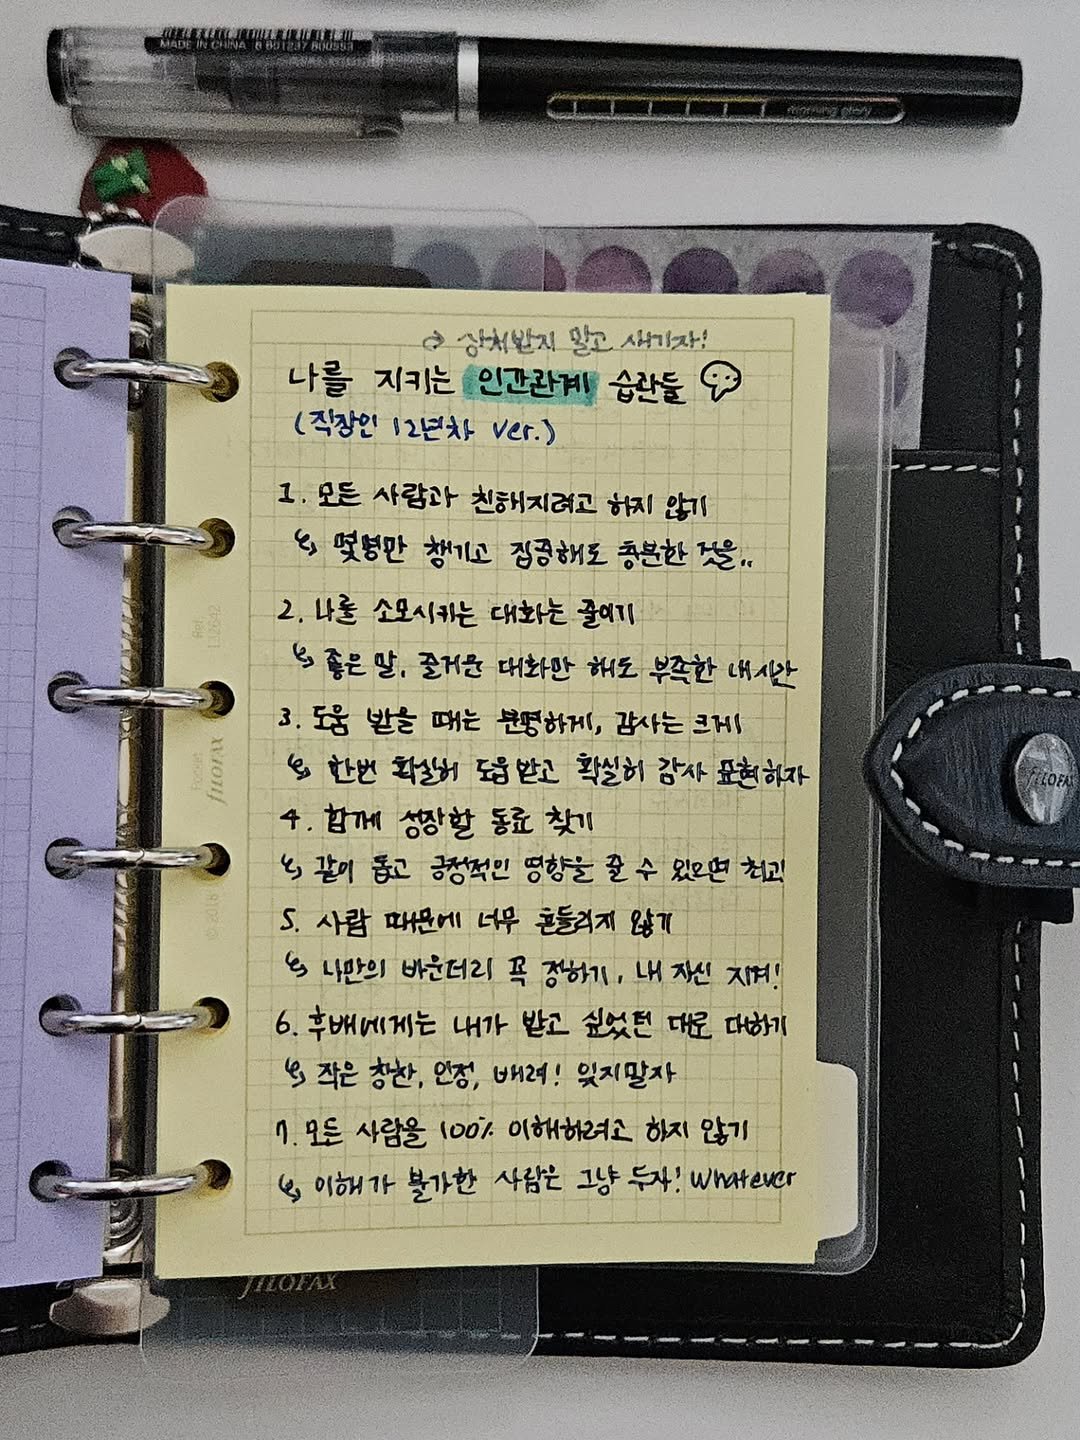 MADE IN CHINA 8 801237 800553
→ 상처받지 말고 새기자!
나를 지키는 인간관계 습관들
(직장인 12년차 ver.)
1. 모든 사람과 친해지려고 하지 않기
↳ 몇명만 챙기고 집중해도 충분한 것을..
2. 나를 소모시키는 대화는 줄이기
↳ 좋은 말, 즐거운 대화만 해도 부족한 내시간
3. 도움 받을 때는 분명하게, 감사는 크게
↳ 한번 확실히 도움받고 확실히 감사 표현하자
4. 함께 성장할 동료 찾기
↳ 같이 돕고 긍정적인 영향을 줄 수 있으면 최고!
5. 사람 때문에 너무 흔들리지 않기
↳ 나만의 바운더리 꼭 정하기, 내 자신 지켜!
6. 후배에게는 내가 받고 싶었던 대로 대하기
↳ 작은 칭찬, 인정, 배려! 잊지말자
7. 모든 사람을 100% 이해하려고 하지 않기
↳ 이해가 불가한 사람은 그냥 두자! whatever
Pocket fILOFAX
© 2018
fILOFAX
fILOFAX